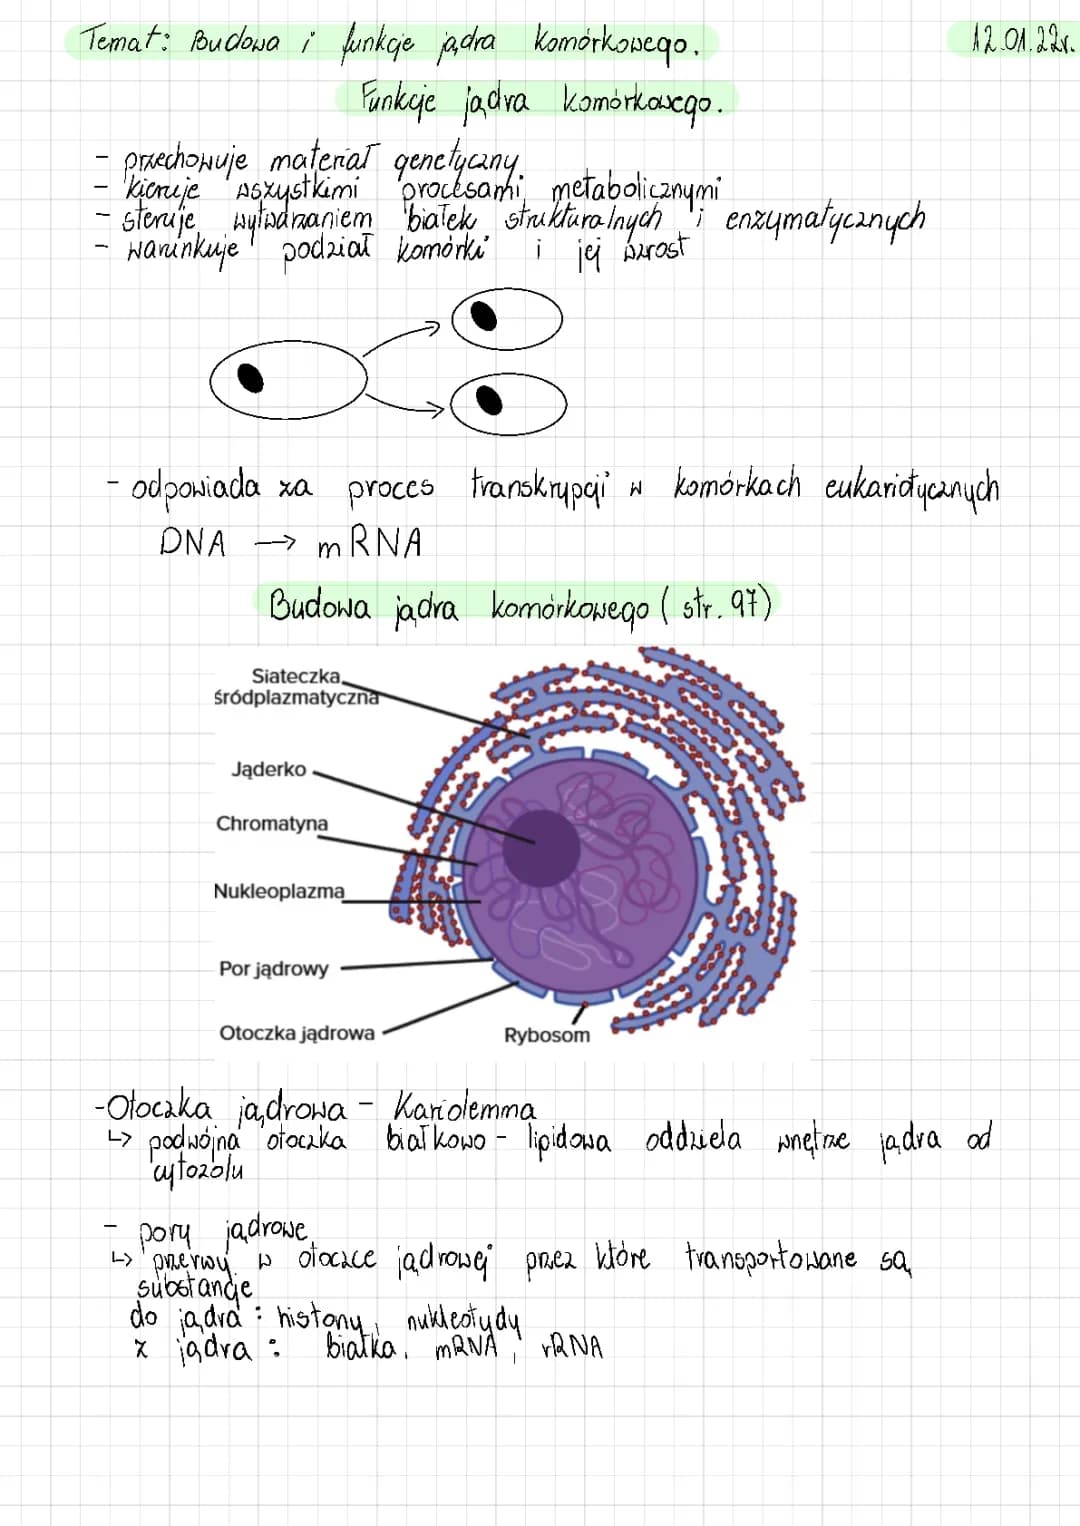 Temat: Budowa i funkcje jądra komórkowego. 12.01.22r.
Funkcje jądra komórkowego.
- przechowuje materiał genetyczny
- kieruje wszystkimi procesami metabolicznymi
- steruje wytwarzaniem białek strukturalnych i enzymatycznych
- warunkuje podział komórki i jej wzrost
- odpowiada za proces transkrypcji w komórkach eukariotycznych
DNA → mRNA
Budowa jądra komórkowego (str. 97)
Siateczka
śródplazmatyczna
Jąderko
Chromatyna
Nukleoplazma
Por jądrowy
Otoczka jądrowa
Rybosom
- Otoczka jądrowa - Kariolemma
↳ podwójna otoczka białkowo - lipidowa oddziela wnętrze jądra od
cytozolu
- pory jądrowe
↳ przerwy w otoczce jądrowej przez które transportowane są
substancje
do jądra : histony, nukleotydy
z jądra : białka, mRNA, rRNA